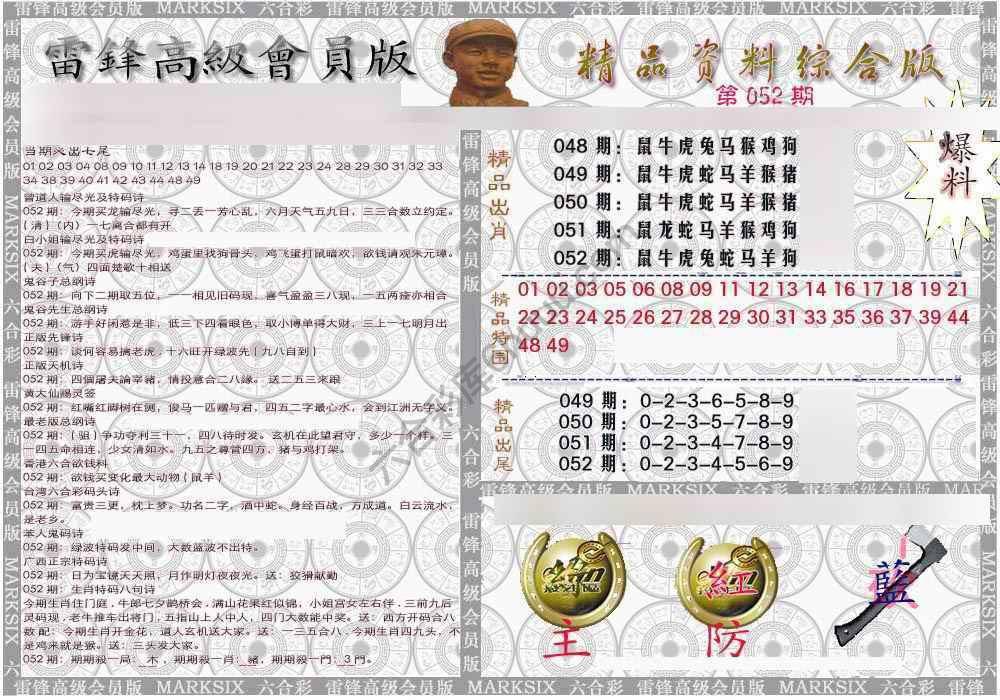 雷锋高級会员版 MARKSIX 六合彩 雷锋高级会员版 MARKSIX 六合彩 雷锋高级会员版
雷鋒高級會員版
精品资料综合版
第 052 期
当期奖出七尾
01 02 03 04 08 09 10 11 12 13 14 18 19 20 21 22 23 24 28 29 30 31 32 33
34 38 39 40 41 42 43 44 48 49
曾道人输尽光及特码诗
052 期：今期买龙输尽光，寻二丢一芳心乱，六月天气五九日，三三合数立约定。
{清}（内）一七离合都有开
白小姐输尽光及特码诗
052 期：今期买虎输尽光，鸡蛋里找狗骨头，鸡飞蛋打鼠暗欢，欲钱请观朱元璋。
{夫}（气）四面楚歌十相送
鬼谷子总纲诗
052 期：向下二期取五位，一一相见旧码现，喜气盈盈三八现，一五两座亦相合
鬼谷先生总纲诗
052 期：游手好闲惹是非，低三下四看眼色，取小博单得大财，三上一七明月出
正版先锋诗
052 期：谈何容易擒老虎．十六旺开绿波先{九八自到}
正版天机诗
052 期：四個屠夫論宰豬，情投意合二八緣。送二五三來跟
黄大仙赐灵签
052 期：红嘴红脚树在侧，俊马一匹赠与君，四五二字最心水，会到江洲无字义。
最老版总纲诗
052 期：{驵}争功夺利三十一，四八待时发。玄机在此望君守，多少一个样。三
一四五命相连，少女清如水。九五之尊管四方，猪与鸡打架。
香港六合欲钱料
052 期：欲钱买变化最大动物{鼠羊}
台湾六合彩码头诗
052 期：富贵三更，枕上梦。功名二字，酒中蛇。身经百战，方成道。白云流水，
是老乡。
苯人鬼码诗
052 期：绿波特码发中间，大数蓝波不出特。
广西正宗特码诗
052 期：日为宝镜天天照，月作明灯夜夜光。送：狡猾献勤
052 期：生肖特码八句诗
今期生肖住门庭．牛郎七夕鹊桥会．满山花果红似锦，小姐宫女左右伴．三前九后
灵码现．老牛推车出将门．五指山上人中人，四门大数能中奖。送：西方开码合八
数 配：今期生肖开金花，道人玄机送大家。送：一三五合八．今期生肖四九头，不
是鸡来就是猴。送：三头发大家。
052 期：期期殺一局：木，期期殺一肖：豬，期期殺一門：3 門。
精品出肖
048 期：鼠牛虎兔马猴鸡狗
049 期：鼠牛虎蛇马羊猴猪
050 期：鼠牛虎蛇马羊猴猪
051 期：鼠龙蛇马羊猴鸡狗
052 期：鼠牛虎兔蛇马羊狗
爆料
精品特围
01 02 03 05 06 08 09 11 12 13 14 16 17 18 19 21
22 23 24 25 26 27 28 29 30 31 33 35 36 37 39 44
48 49
精品出尾
049 期：0-2-3-6-5-8-9
050 期：0-2-3-4-5-8-9
051 期：0-2-3-4-7-8-9
052 期：0-2-3-4-5-6-9
雷锋高级会员版 MARKSIX 六合彩 雷锋高级会员版
主
紅
防
藍
雷锋高级会员版 MARKSIX 六合彩 雷锋高级会员版 MARKSIX 六合彩 雷锋高级会员版